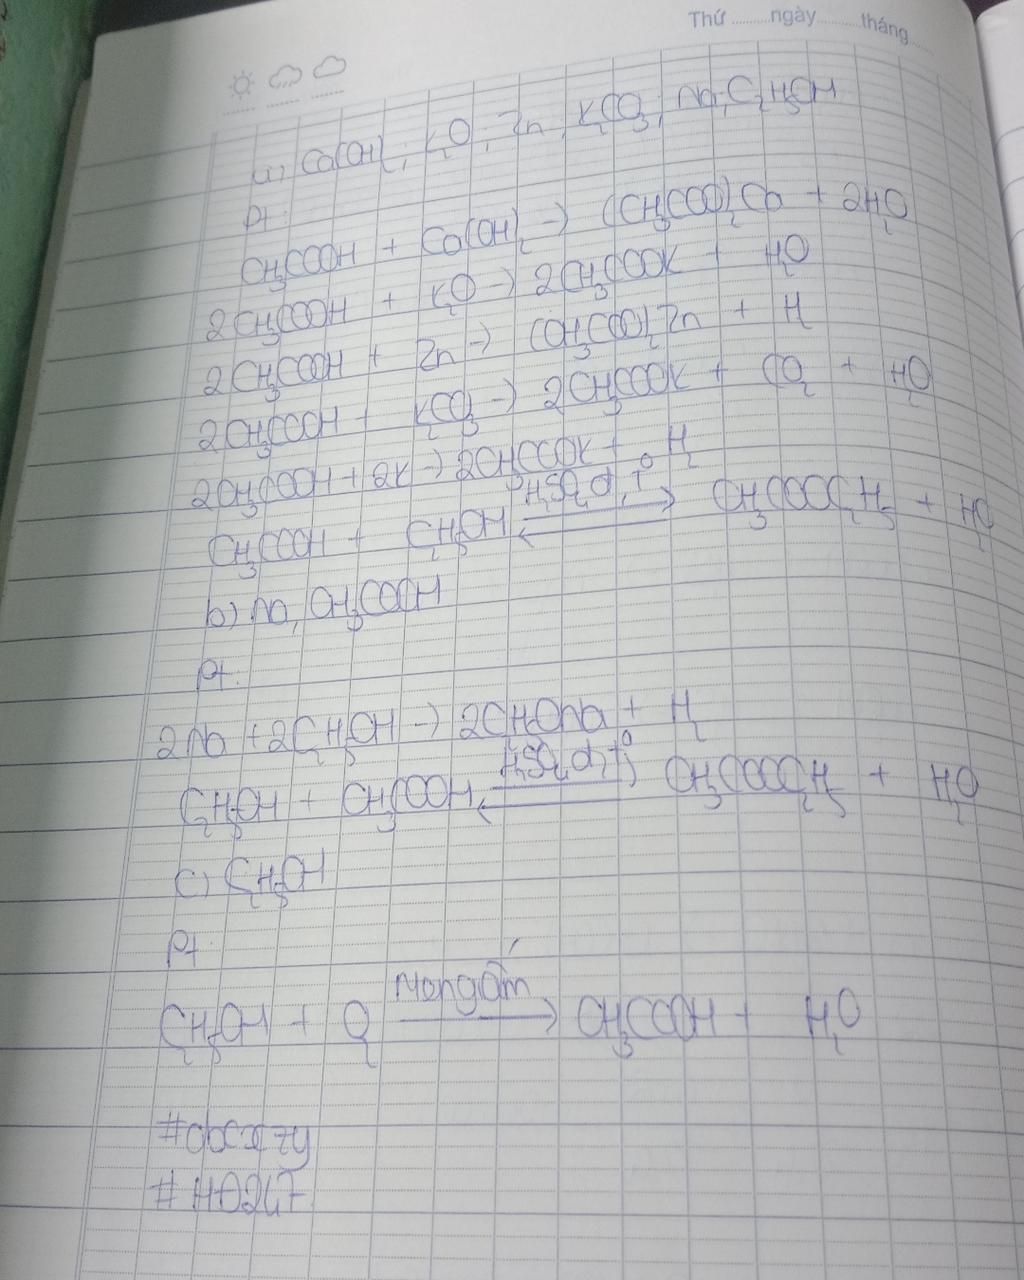 Thứ..........ngày..........tháng
a) Ca(OH)₂, K₂O, Zn, K₂CO₃, Na, C₂H₅OH
Pt:
CH₃COOH + Ca(OH)₂ → (CH₃COO)₂Ca + 2H₂O
2CH₃COOH + K₂O → 2CH₃COOK + H₂O
2CH₃COOH + Zn → (CH₃COO)₂Zn + H
2CH₃COOH + K₂CO₃ → 2CH₃COOK + CO₂ + H₂O
2CH₃COOH + 2K → 2CH₃COOK + H₂
H₂SO₄ đ, t⁰
CH₃COOH + C₂H₅OH ⇌ CH₃COOC₂H₅ + H₂O
b) Na, CH₃COOH
Pt:
2Na + 2C₂H₅OH → 2CHONa + H₂
H₂SO₄ đ, t⁰
C₂H₅OH + CH₃COOH ⇌ CH₃COOC₂H₅ + H₂O
c) C₂H₅OH
Pt:
Men giấm
C₂H₅OH + O₂ → CH₃COOH + H₂O
#abcxzy
#HD247